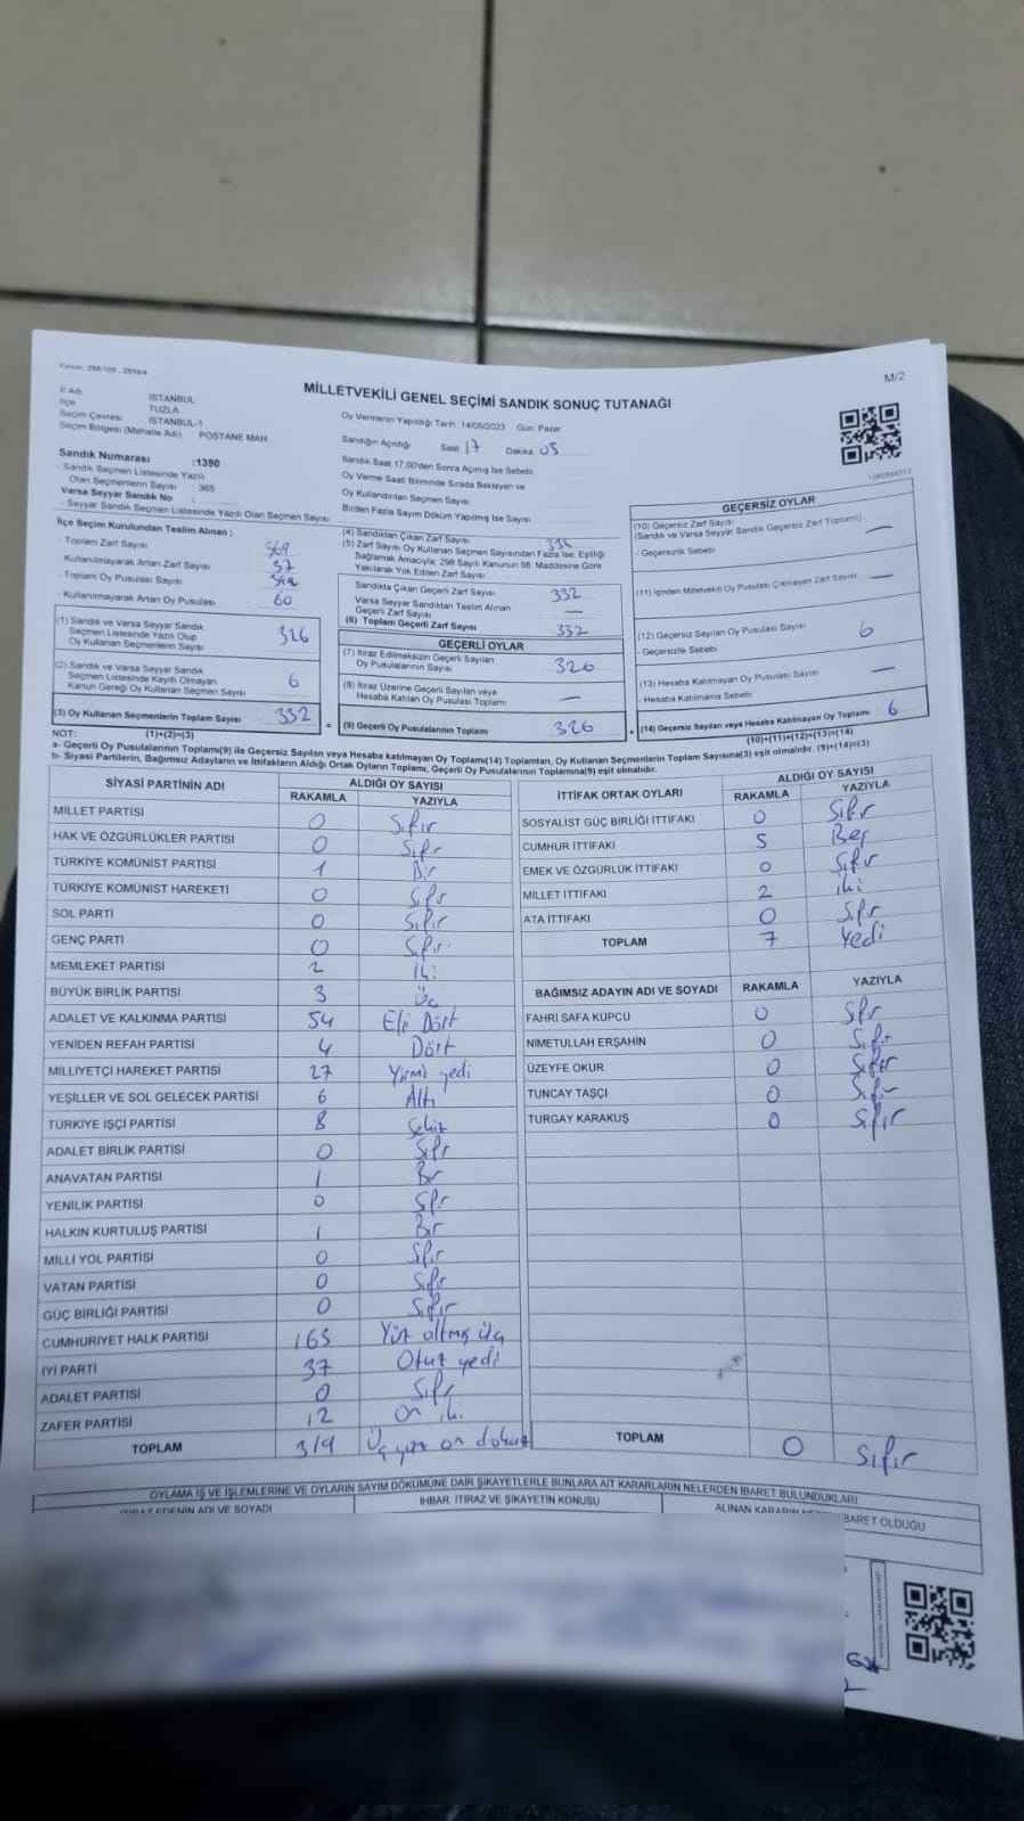 M/2
MİLLETVEKİLİ GENEL SEÇİMİ SANDIK SONUÇ TUTANAĞI
İl Adı İSTANBUL
İlçe TUZLA
Seçim Çevresi İSTANBUL-1
Seçim Bölgesi (Mahalle Adı) : POSTANE MAH.
Oy Vermenin Yapıldığı Tarih: 14/05/2023 Gün: Pazar
Sandığın Açıldığı Saat 17 Dakika 05
Sandık Saat 17.00'den Sonra Açılmış İse Sebebi
Oy Verme Saati Bitiminde Sırada Bekleyen ve
Oy Kullandırılan Seçmen Sayısı
Birden Fazla Sayım Döküm Yapılmış İse Sayısı
Sandık Numarası :1390
Sandık Seçmen Listesinde Yazılı
Olan Seçmenlerin Sayısı : 365
Varsa Seyyar Sandık No :
- Seyyar Sandık Seçmen Listesinde Yazılı Olan Seçmen Sayısı
İlçe Seçim Kurulundan Teslim Alınan :
- Toplam Zarf Sayısı
Kullanılmayarak Artan Zarf Sayısı 37
- Toplam Oy Pusulası Sayısı
- Kullanılmayarak Artan Oy Pusulası 60
(1) Sandık ve Varsa Seyyar Sandık
Seçmen Listesinde Yazılı Olup
Oy Kullanan Seçmenlerin Sayısı 326
(2) Sandık ve Varsa Seyyar Sandık
Seçmen Listesinde Kayıtlı Olmayan
Kanun Gereği Oy Kullanan Seçmen Sayısı 6
(3) Oy Kullanan Seçmenlerin Toplam Sayısı 332
(1)+(2)=(3)
(4) Sandıktan Çıkan Zarf Sayısı
(5) Zarf Sayısı Oy Kullanan Seçmen Sayısından Fazla İse, Eşitliği
Sağlamak Amacıyla; 298 Sayılı Kanunun 98. Maddesine Göre
Yakılarak Yok Edilen Zarf Sayısı
Sandıkta Çıkan Geçerli Zarf Sayısı 332
Varsa Seyyar Sandıktan Teslim Alınan
Geçerli Zarf Sayısı —
(6) Toplam Geçerli Zarf Sayısı 332
GEÇERLİ OYLAR
(7) İtiraz Edilmeksizin Geçerli Sayılan
Oy Pusulalarının Sayısı 326
(8) İtiraz Üzerine Geçerli Sayılan veya
Hesaba Katılan Oy Pusulası Toplamı —
= (9) Geçerli Oy Pusulalarının Toplamı 326
GEÇERSİZ OYLAR
(10) Geçersiz Zarf Sayısı
(Sandık ve Varsa Seyyar Sandık Geçersiz Zarf Toplamı) —
- Geçersizlik Sebebi
(11) İçinden Milletvekili Oy Pusulası Çıkmayan Zarf Sayısı —
(12) Geçersiz Sayılan Oy Pusulası Sayısı 6
- Geçersizlik Sebebi
(13) Hesaba Katılmayan Oy Pusulası Sayısı —
- Hesaba Katılmama Sebebi
+ (14) Geçersiz Sayılan veya Hesaba Katılmayan Oy Toplamı 6
(10)+(11)+(12)+(13)=(14)
NOT:
a- Geçerli Oy Pusulalarının Toplamı(9) ile Geçersiz Sayılan veya Hesaba katılmayan Oy Toplamı(14) Toplamları, Oy Kullanan Seçmenlerin Toplam Sayısına(3) eşit olmalıdır. (9)+(14)=(3)
b- Siyasi Partilerin, Bağımsız Adayların ve İttifakların Aldığı Ortak Oyların Toplamı, Geçerli Oy Pusulalarının Toplamına(9) eşit olmalıdır.
SİYASİ PARTİNİN ADI ALDIĞI OY SAYISI
RAKAMLA YAZIYLA
MİLLET PARTİSİ 0 Sıfır
HAK VE ÖZGÜRLÜKLER PARTİSİ 0 Sıfır
TÜRKİYE KOMÜNİST PARTİSİ 1 Bir
TÜRKİYE KOMÜNİST HAREKETİ 0 Sıfır
SOL PARTİ 0 Sıfır
GENÇ PARTİ 0 Sıfır
MEMLEKET PARTİSİ 2 İki
BÜYÜK BİRLİK PARTİSİ 3 Üç
ADALET VE KALKINMA PARTİSİ 54 Elli Dört
YENİDEN REFAH PARTİSİ 4 Dört
MİLLİYETÇİ HAREKET PARTİSİ 27 Yirmi yedi
YEŞİLLER VE SOL GELECEK PARTİSİ 6 Altı
TÜRKİYE İŞÇİ PARTİSİ 8 Sekiz
ADALET BİRLİK PARTİSİ 0 Sıfır
ANAVATAN PARTİSİ 1 Bir
YENİLİK PARTİSİ 0 Sıfır
HALKIN KURTULUŞ PARTİSİ 1 Bir
MİLLİ YOL PARTİSİ 0 Sıfır
VATAN PARTİSİ 0 Sıfır
GÜÇ BİRLİĞİ PARTİSİ 0 Sıfır
CUMHURİYET HALK PARTİSİ 163 Yüz altmış üç
İYİ PARTİ 37 Otuz yedi
ADALET PARTİSİ 0 Sıfır
ZAFER PARTİSİ 12 On iki
TOPLAM 319 Üç yüz on dokuz
İTTİFAK ORTAK OYLARI ALDIĞI OY SAYISI
RAKAMLA YAZIYLA
SOSYALİST GÜÇ BİRLİĞİ İTTİFAKI 0 Sıfır
CUMHUR İTTİFAKI 5 Beş
EMEK VE ÖZGÜRLÜK İTTİFAKI 0 Sıfır
MİLLET İTTİFAKI 2 iki
ATA İTTİFAKI 0 Sıfır
TOPLAM 7 Yedi
BAĞIMSIZ ADAYIN ADI VE SOYADI RAKAMLA YAZIYLA
FAHRİ SAFA KÜPCÜ 0 Sıfır
NİMETULLAH ERŞAHİN 0 Sıfır
ÜZEYFE OKUR 0 Sıfır
TUNCAY TAŞÇI 0 Sıfır
TURGAY KARAKUŞ 0 Sıfır
TOPLAM 0 Sıfır
OYLAMA İŞ VE İŞLEMLERİNE VE OYLARIN SAYIM DÖKÜMÜNE DAİR ŞİKAYETLERLE BUNLARA AİT KARARLARIN NELERDEN İBARET BULUNDUKLARI
ADI VE SOYADI
İHBAR, İTİRAZ VE ŞİKAYETİN KONUSU
ALINAN KARARIN BARET OLDUĞU